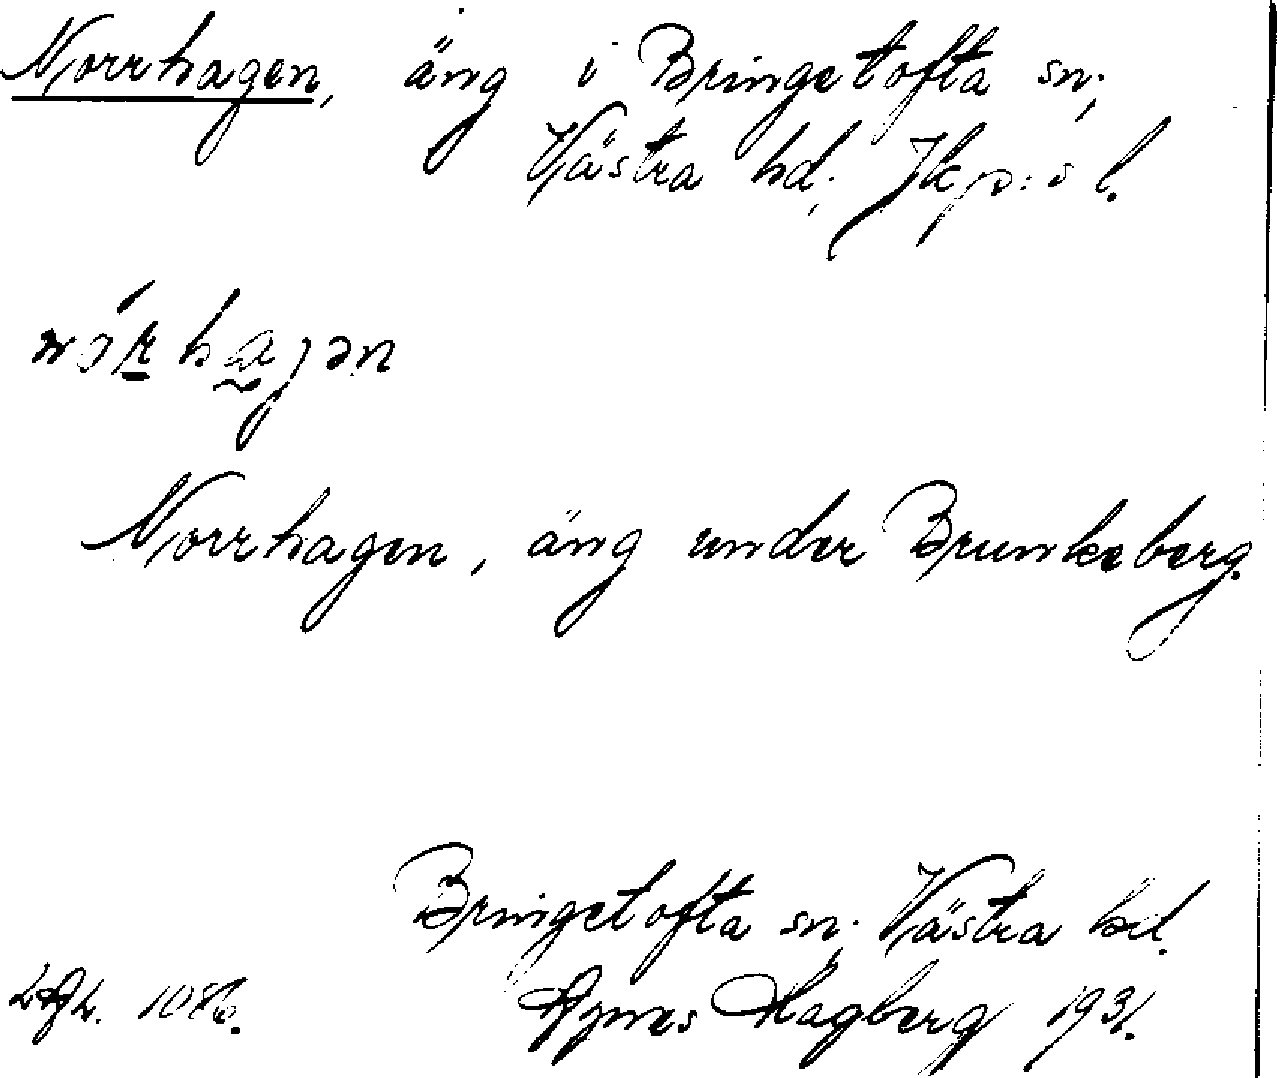 Norrhagen, äng i Bringetofta sn.,
Västra hd., Jkp:s l.
nórhagən
Norrhagen, äng under Brunkeberg.
Bringetofta sn., Västra hd.
Agnes Hagberg 1931.